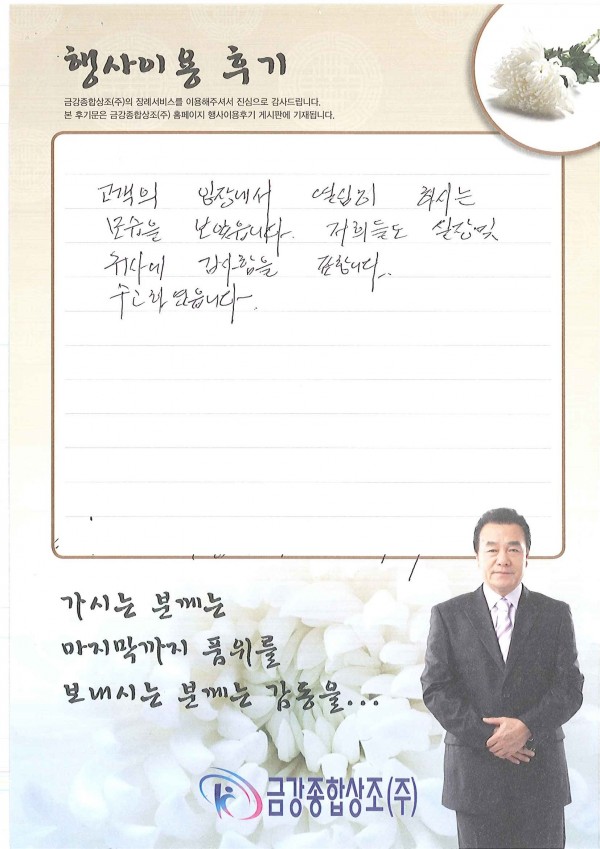 행사이용 후기
금강종합상조(주)의 장례서비스를 이용해주셔서 진심으로 감사드립니다.
본 후기문은 금강종합상조(주) 홈페이지 행사이용후기 게시판에 기재됩니다.
고객의 입장에서 열심히 하시는
모습을 보았읍니다. 저희들도 실장및
여사에 감사함을 표합니다.
수고하셨읍니다.
가시는 분께는
마지막까지 품위를
보내시는 분께는 감동을...
금강종합상조(주)